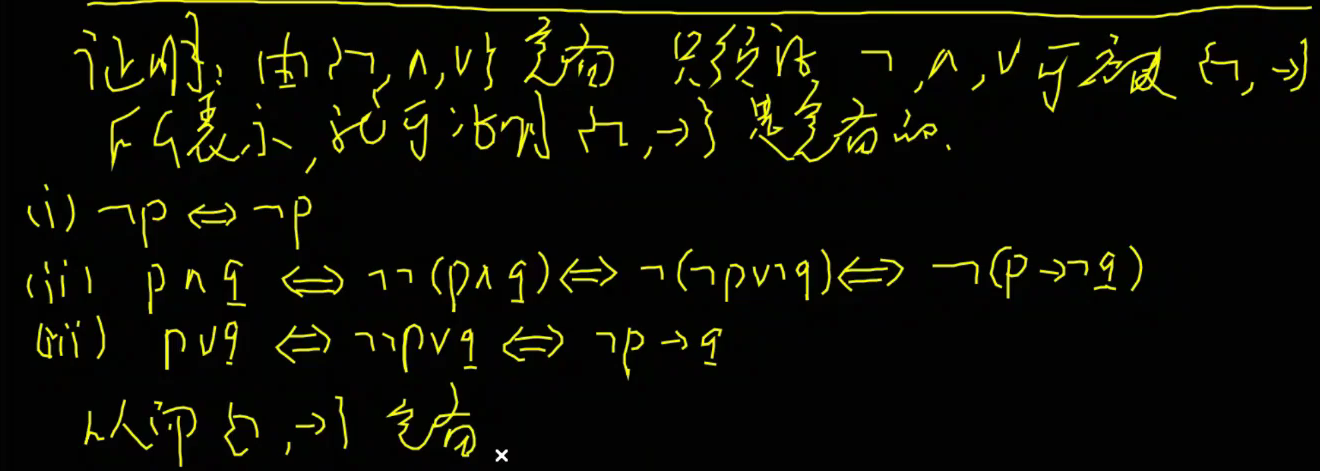 证明：由{¬,∧,∨}完备 只须证 ¬,∧,∨可被{¬,→}
所表示,就可证明{¬,→}是完备的.
(i) ¬p ⇔ ¬p
(ii) p∧q ⇔ ¬¬(p∧q) ⇔ ¬(¬p∨¬q) ⇔ ¬(p→¬q)
(iii) p∨q ⇔ ¬¬p∨q ⇔ ¬p→q
从而{¬,→}完备.